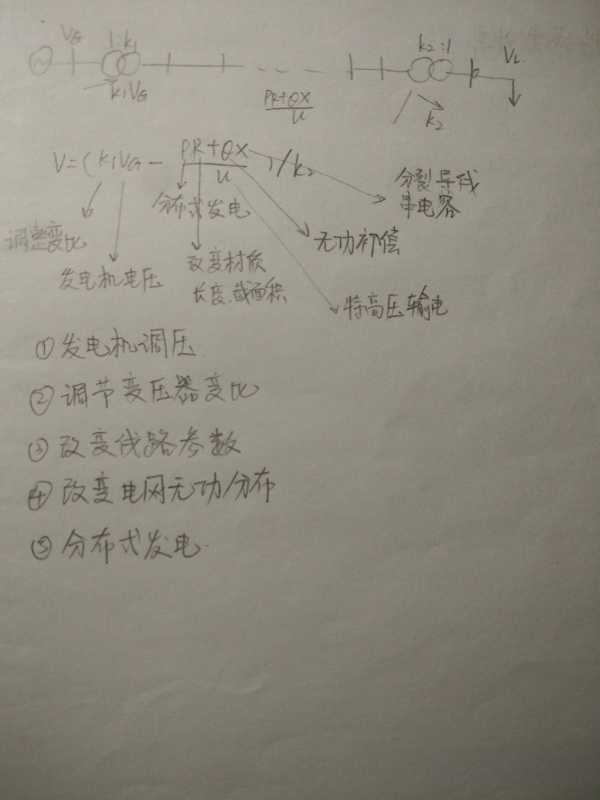 VG 1:k1 k2:1 VL
k1VG PR+QX/U k2
V=(k1VG - PR+QX/U)/k2
分裂导线
串电容
分布式发电
调整变比
无功补偿
发电机电压
改变材质
长度、截面积
特高压输电
①发电机调压
②调节变压器变比
③改变线路参数
④改变电网无功分布
⑤分布式发电